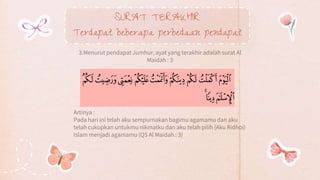 SURAT TERAKHIR
Terdapat beberapa perbedaan pendapat
3.Menurut pendapat Jumhur, ayat yang terakhir adalah surat Al
Maidah : 3
ٱلْيَوْمَ أَكْمَلْتُ لَكُمْ دِينَكُمْ وَأَتْمَمْتُ عَلَيْكُمْ نِعْمَتِى وَرَضِيتُ لَكُمُ
ٱلْإِسْلَٰمَ دِينًا ۚ
Artinya :
Pada hari ini telah aku sempurnakan bagimu agamamu dan aku
telah cukupkan untukmu nikmatku dan aku telah pilih (Aku Ridhoi)
Islam menjadi agamamu (QS Al Maidah : 3)